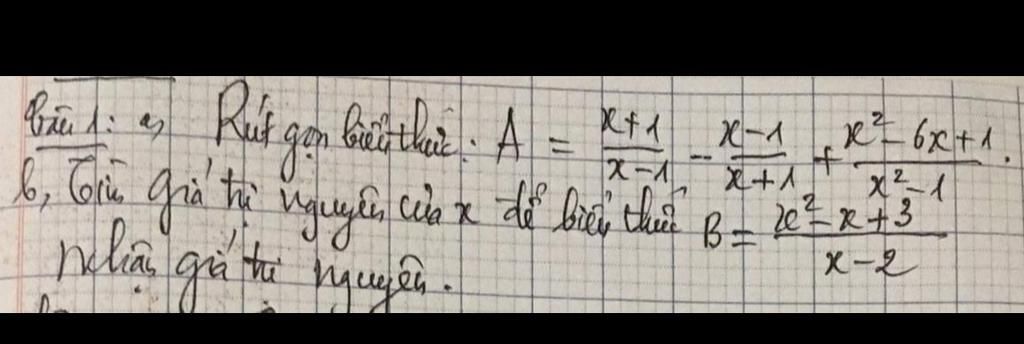 Bài 1: a, Rút gọn biểu thức: A = \frac{x+1}{x-1} - \frac{x-1}{x+1} + \frac{x^2-6x+1}{x^2-1}.
b, Tìm giá trị nguyên của x để biểu thức B = \frac{x^2-x+3}{x-2}
nhận giá trị nguyên.